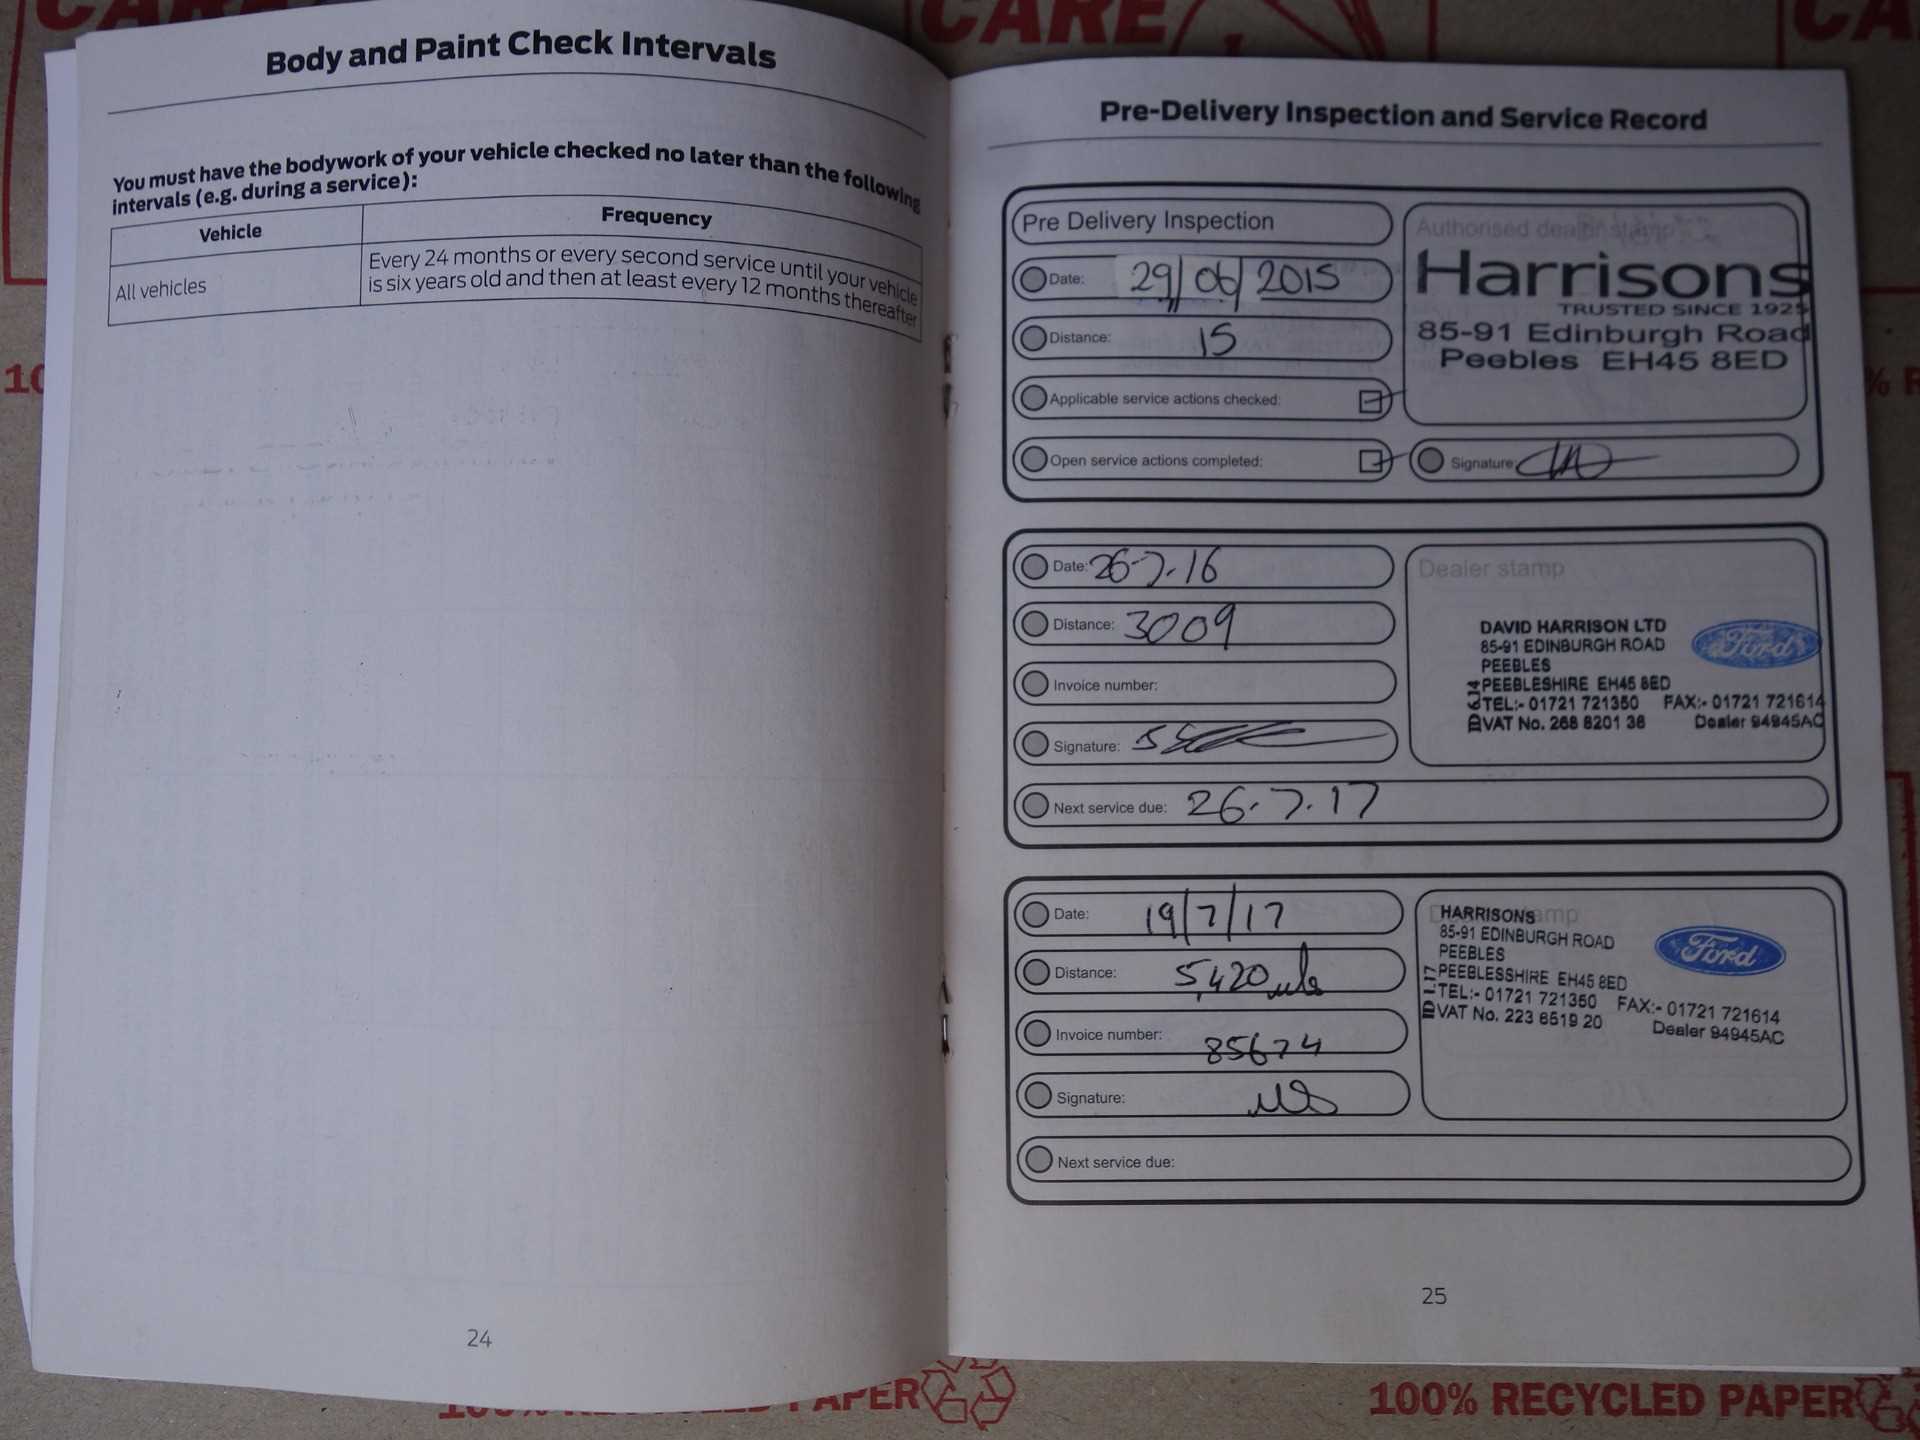 CARE
CARE
CA
Body and Paint Check Intervals
You must have the bodywork of your vehicle checked no later than the following
intervals (e.g. during a service):
Vehicle
Frequency
All vehicles
Every 24 months or every second service until your vehicle
is six years old and then at least every 12 months thereafter
24
Pre-Delivery Inspection and Service Record
Pre Delivery Inspection
Date: 29/06/2015
Distance: 15
Applicable service actions checked:
Open service actions completed:
Authorised dealer stamp
Harrisons
TRUSTED SINCE 1925
85-91 Edinburgh Road
Peebles EH45 8ED
Signature:
Date: 26-7-16
Distance: 3009
Invoice number:
Signature:
Next service due: 26.7.17
Dealer stamp
DAVID HARRISON LTD
85-91 EDINBURGH ROAD
PEEBLES
PEEBLESHIRE EH45 8ED
TEL:- 01721 721350 FAX:- 01721 721614
VAT No. 268 8201 36 Dealer 94945AC
Ford
Date: 19/7/17
Distance: 5,420 mls
Invoice number: 85674
Signature:
Next service due:
HARRISONS
85-91 EDINBURGH ROAD
PEEBLES
PEEBLESSHIRE EH45 8ED
TEL:- 01721 721350 FAX:- 01721 721614
VAT No. 223 6519 20 Dealer 94945AC
Ford
25
10
% R
PAPER
100% RECYCLED PAPER